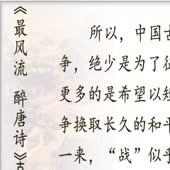 《最风流 醉唐诗》
所以，中国古
争，绝少是为了征
更多的是希望以短
争换取长久的和平
一来，“战”似乎